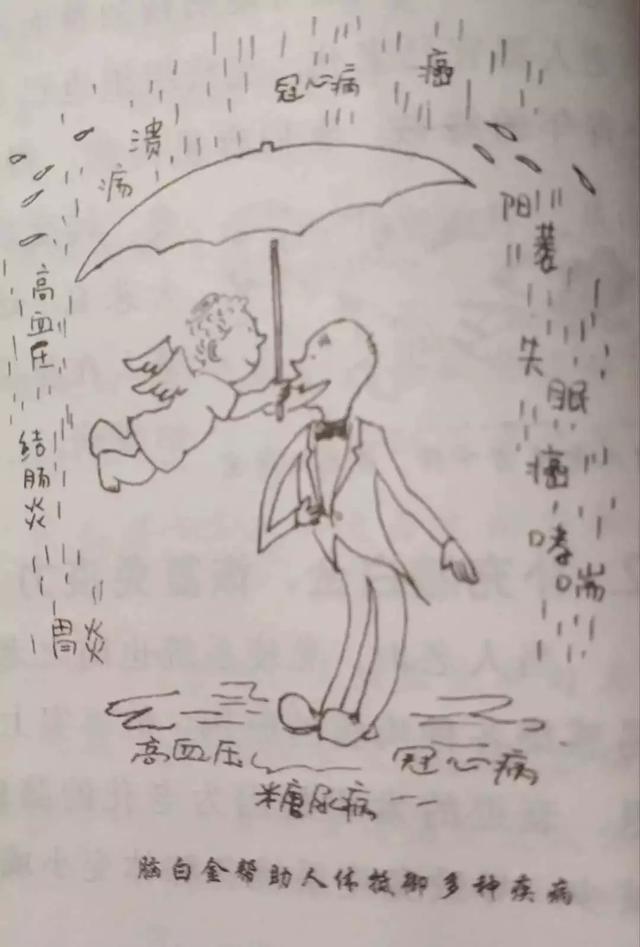 冠心病
癌
溃
疡
阳萎
失眠
癌
哮喘
高血压
结肠炎
胃炎
高血压
冠心病
糖尿病——
脑白金帮助人体抵御多种疾病